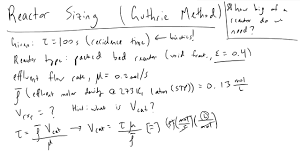 Reactor Sizing (Guthrie Method)
How big of a reactor do we need?
Given: τ = 100s (residence time) ← kinetics!
Reactor type: packed bed reactor (void frac, ε = 0.4)
effluent flow rate, μ = 0.2 mol/s
ρ̂ (effluent molar density @ 273K, 1atm (STP)) = 0.13 mol/L
V = ? Hint: what is Vcat?
τ = ρ̂ Vcat / μ → Vcat = τ μ / ρ̂ [=] (s)(mol/s)(L/mol)